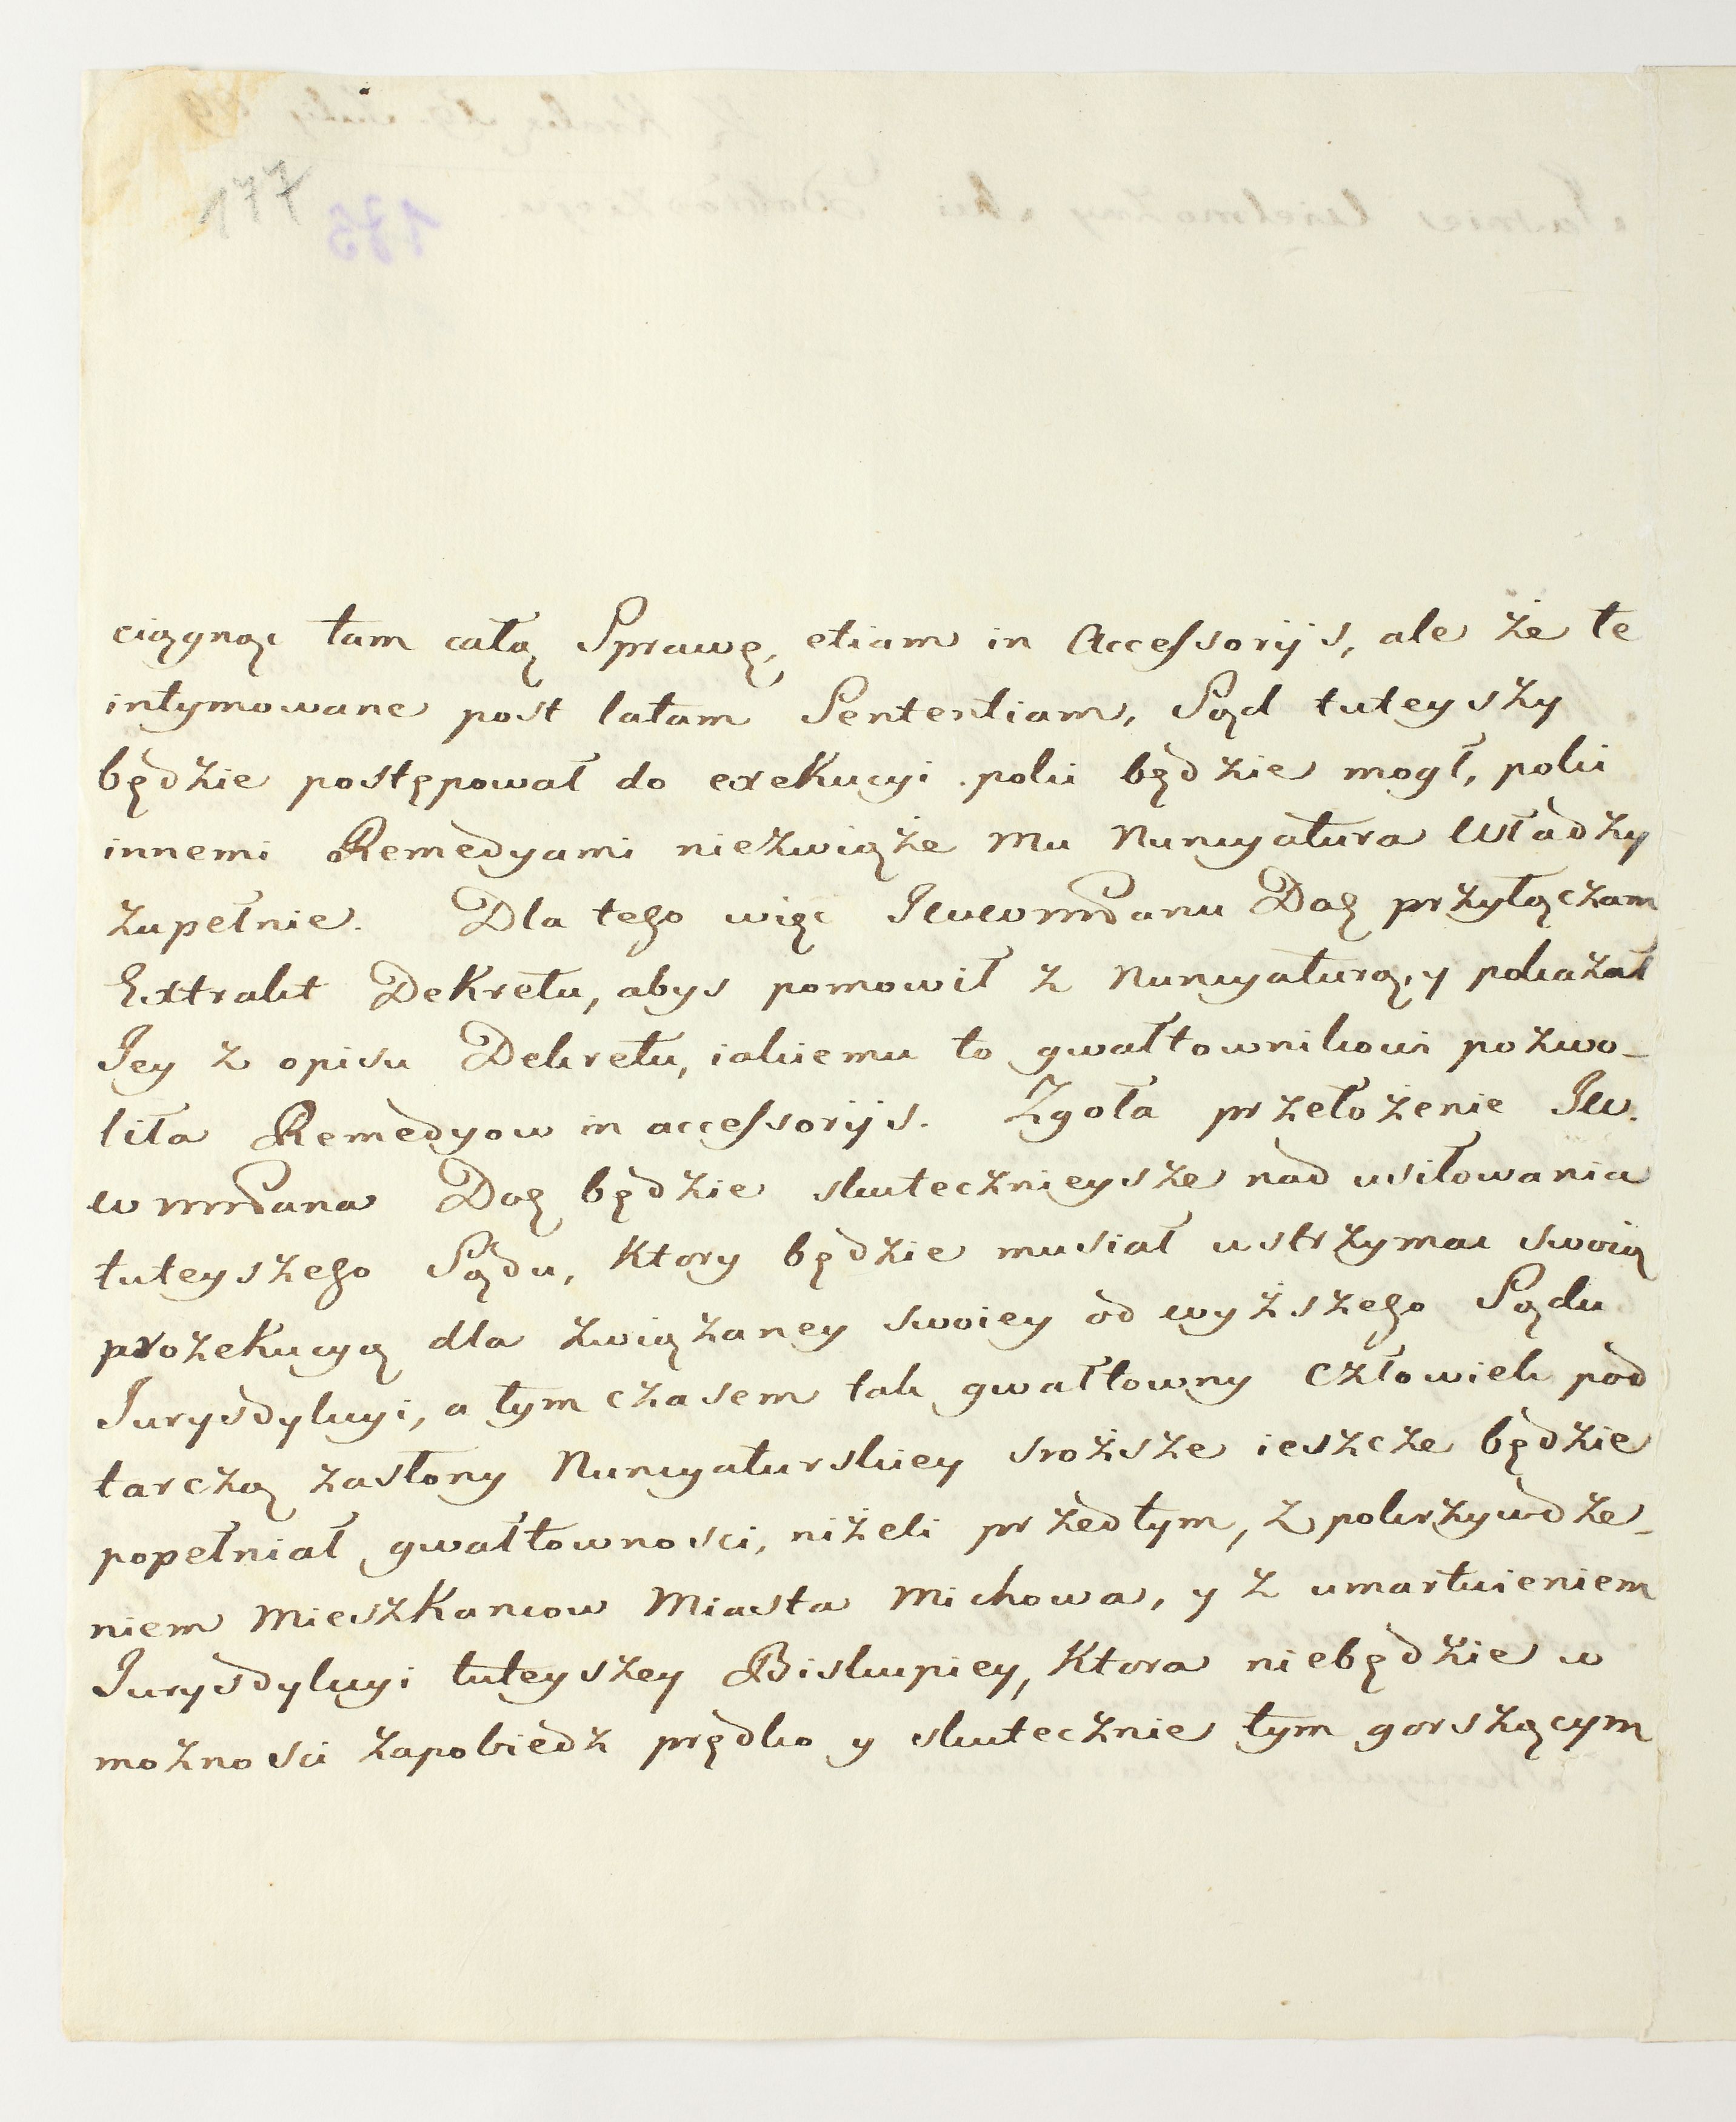 177
ciągnąc tam całą Sprawę, etiam in Accessorijs, ale że te
intymowane post latam Sententiam, Sąd tuteyszy
będzie postępował do exekucyi poki będzie mogł, poki
innemi Remedyami niezwiąże mu Nuncyatura Władzy
zupełnie. Dla tego więc Dog przyłączam
Extrakt Dekretu, abys pomowił z Nuncyaturą, y pokazał
Jey z opisu Dekretu, iakiemu to gwałtownikowi pozwo-
liła Remedyow in accessorijs. Zgoła przełożenie JW.
Dog będzie skutecznieysze nad usiłowania
tuteyszego Sądu, Ktory będzie musiał ustrzymac swoią
prozekucyą dla związaney swoiey od wyższego Sądu
Jurysdykcyi, a tym czasem tak gwałtowny człowiek pod
tarczą zasłony Nuncyaturskiey sroższe ieszcze będzie
popełniał gwałtownosci, niżeli przedtym, z pokrzywdze-
niem Mieszkancow Miasta Michowa, y z umartwieniem
Jurysdykcyi tuteyszey Biskupiey, Ktora niebędzie w
możnosci zapobiedz prędko y skutecznie tym gorszącym